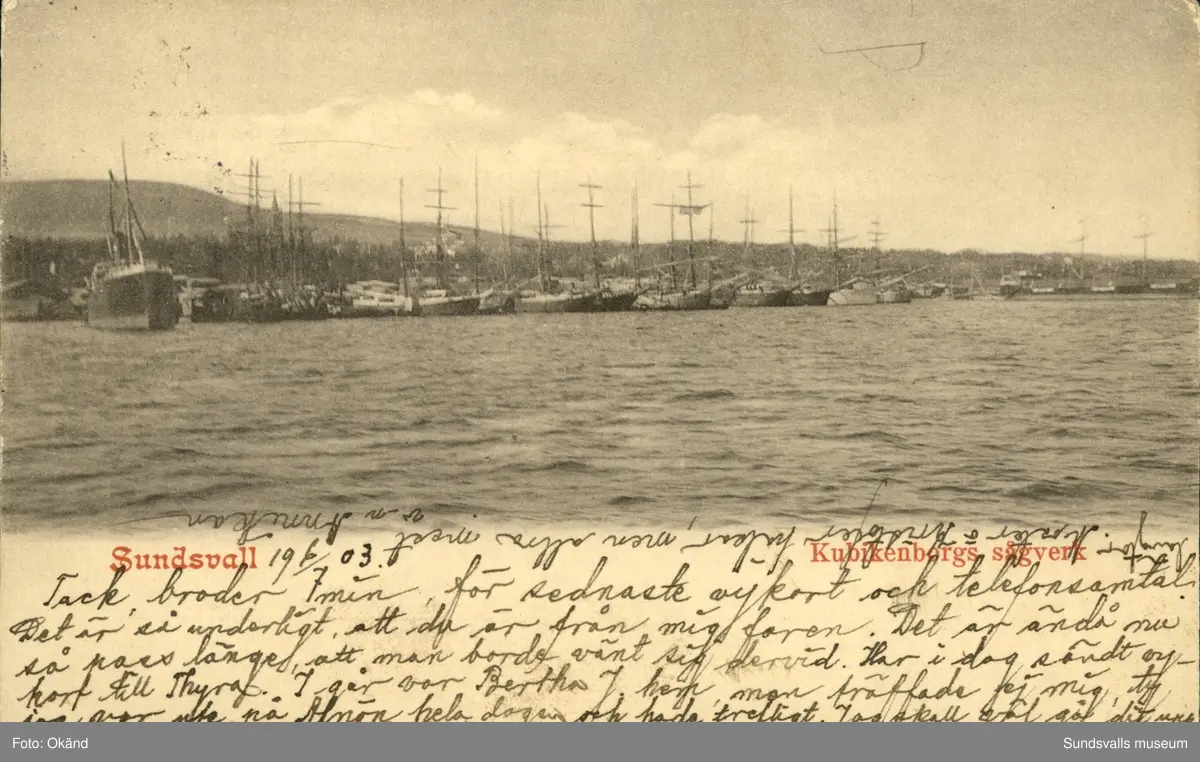 Sundsvall 19 6/6 03. Kubikenborgs sågverk
Tack, broder min, för sednaste vykort och telefonsamtal.
Det är så underligt, att du är från mig faren. Det är ändå nu
så pass länge, att man borde vänt sig dervid. Har i dag sändt vy-
kort till Thyra. I går var Bertha J. hem, men träffade ej mig, ty
jag var ute på Alnön hela dagen och hade trefligt. Jag skall väl gå dit
men allra mest
Foto: Okänd
Sundsvalls museum